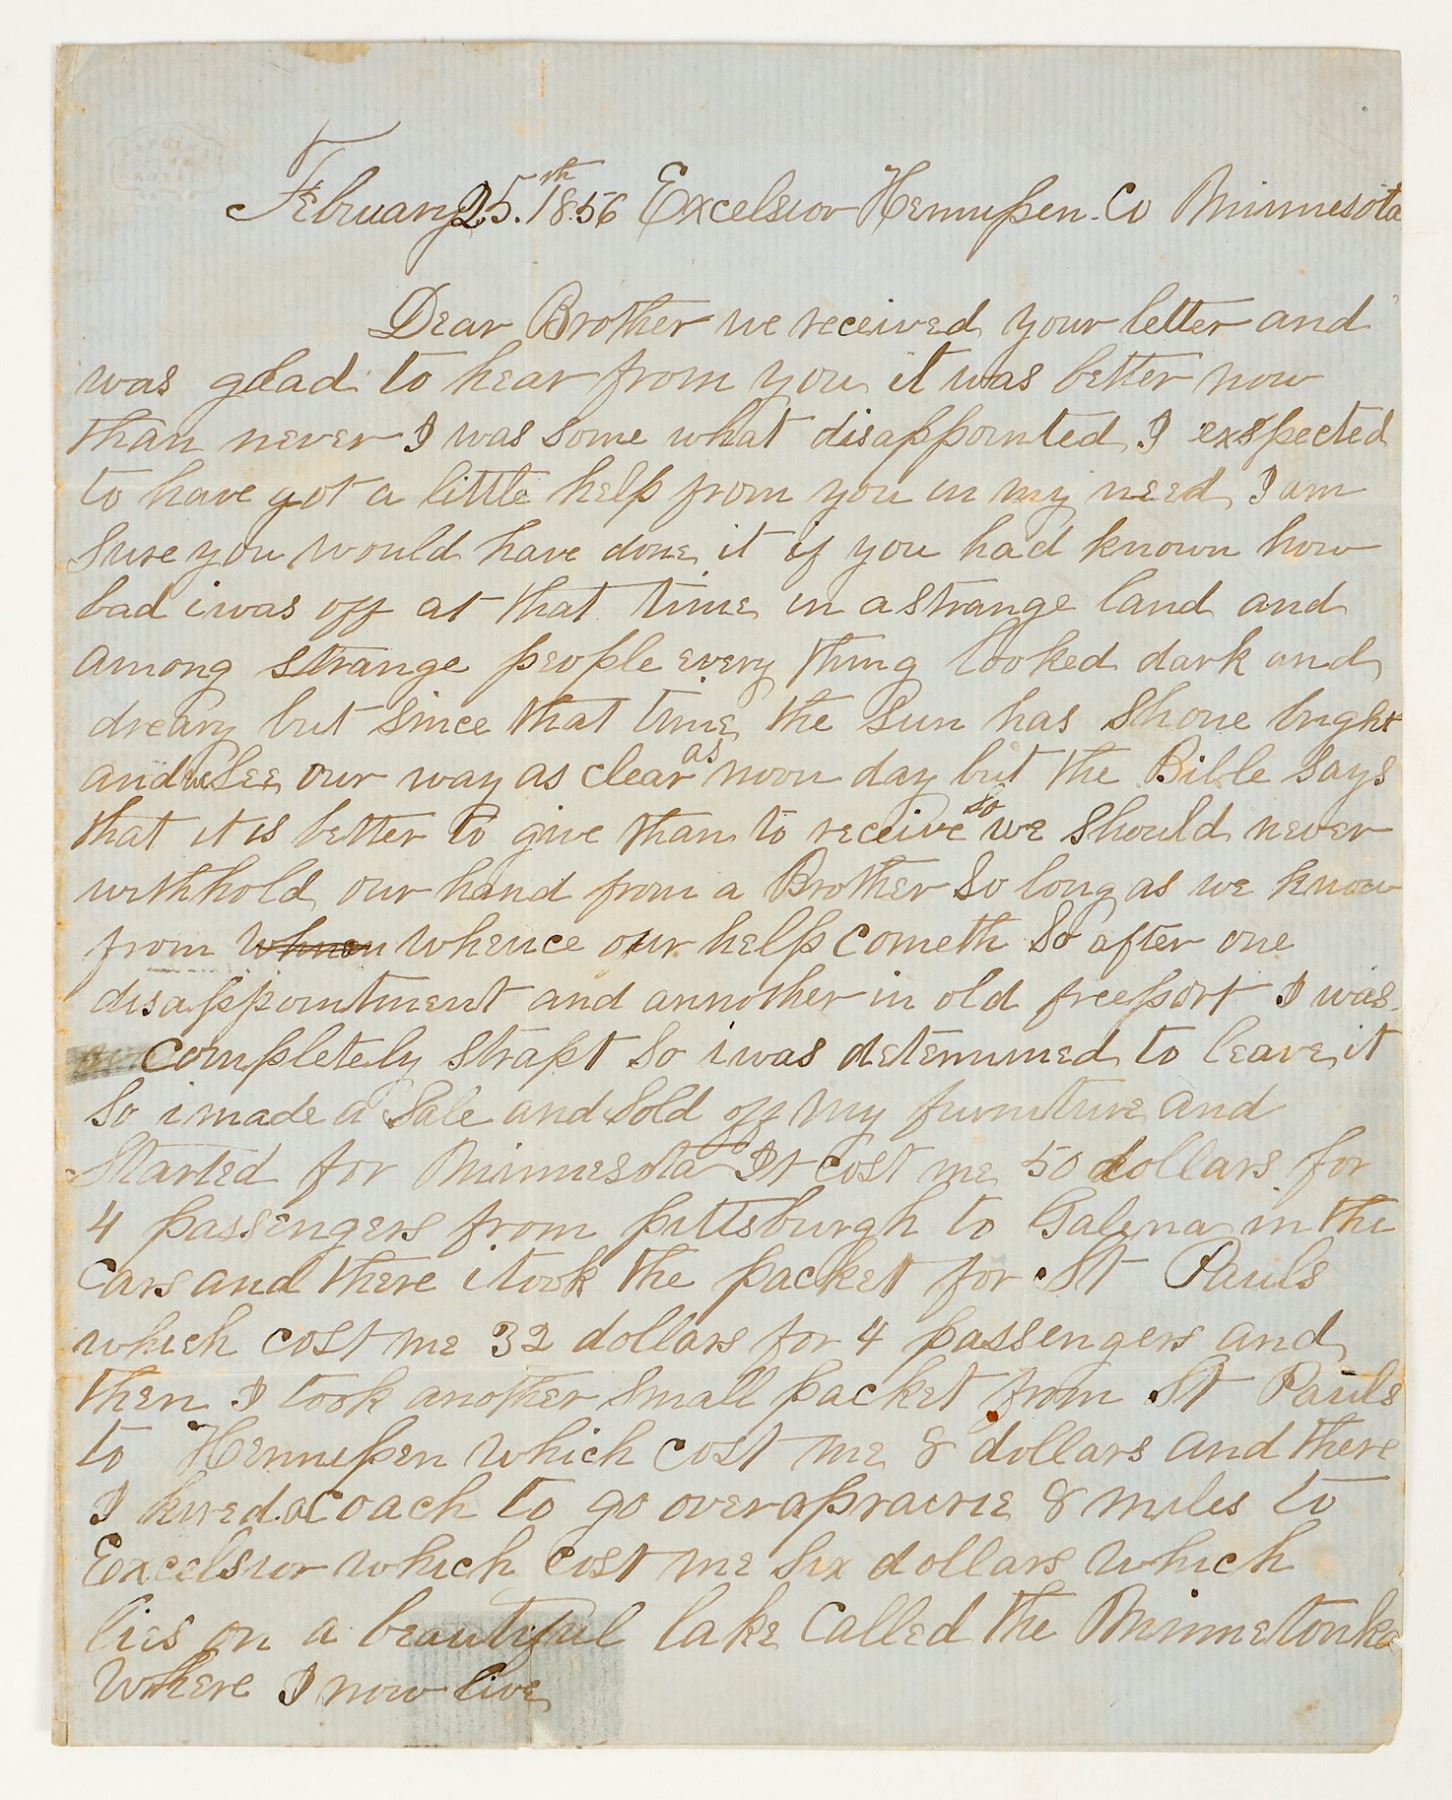 February 25.th 1856 Excelsior Hennepen Co Minnesota
Dear Brother we received your letter and
was glad to hear from you it was better now
than never I was some what disappointed I exspected
to have got a little help from you in my need I am
sure you would have done it if you had known how
bad i was off at that time in a strange land and
among strange people every thing looked dark and
dreary but since that time the sun has shone bright
and we see our way as clear as noon day but the Bible says
that it is better to give than to receive so we should never
withhold our hand from a Brother so long as we know
from when whence our help cometh so after one
disappointment and annother in old freeport I was
completely strapt so i was determined to leave it
so i made a sale and sold off my furniture and
started for Minnesota It cost me 50 dollars for
4 passengers from pittsburgh to Galena in the
cars and there i took the packet for St Pauls
which cost me 32 dollars for 4 passengers and
then I took another small packet from St Pauls
to Hennepen which cost me 8 dollars and there
I hired a coach to go over a prairie 8 miles to
Excelsior which cost me six dollars which
lies on a beautiful lake called the Minnetonka
where I now live